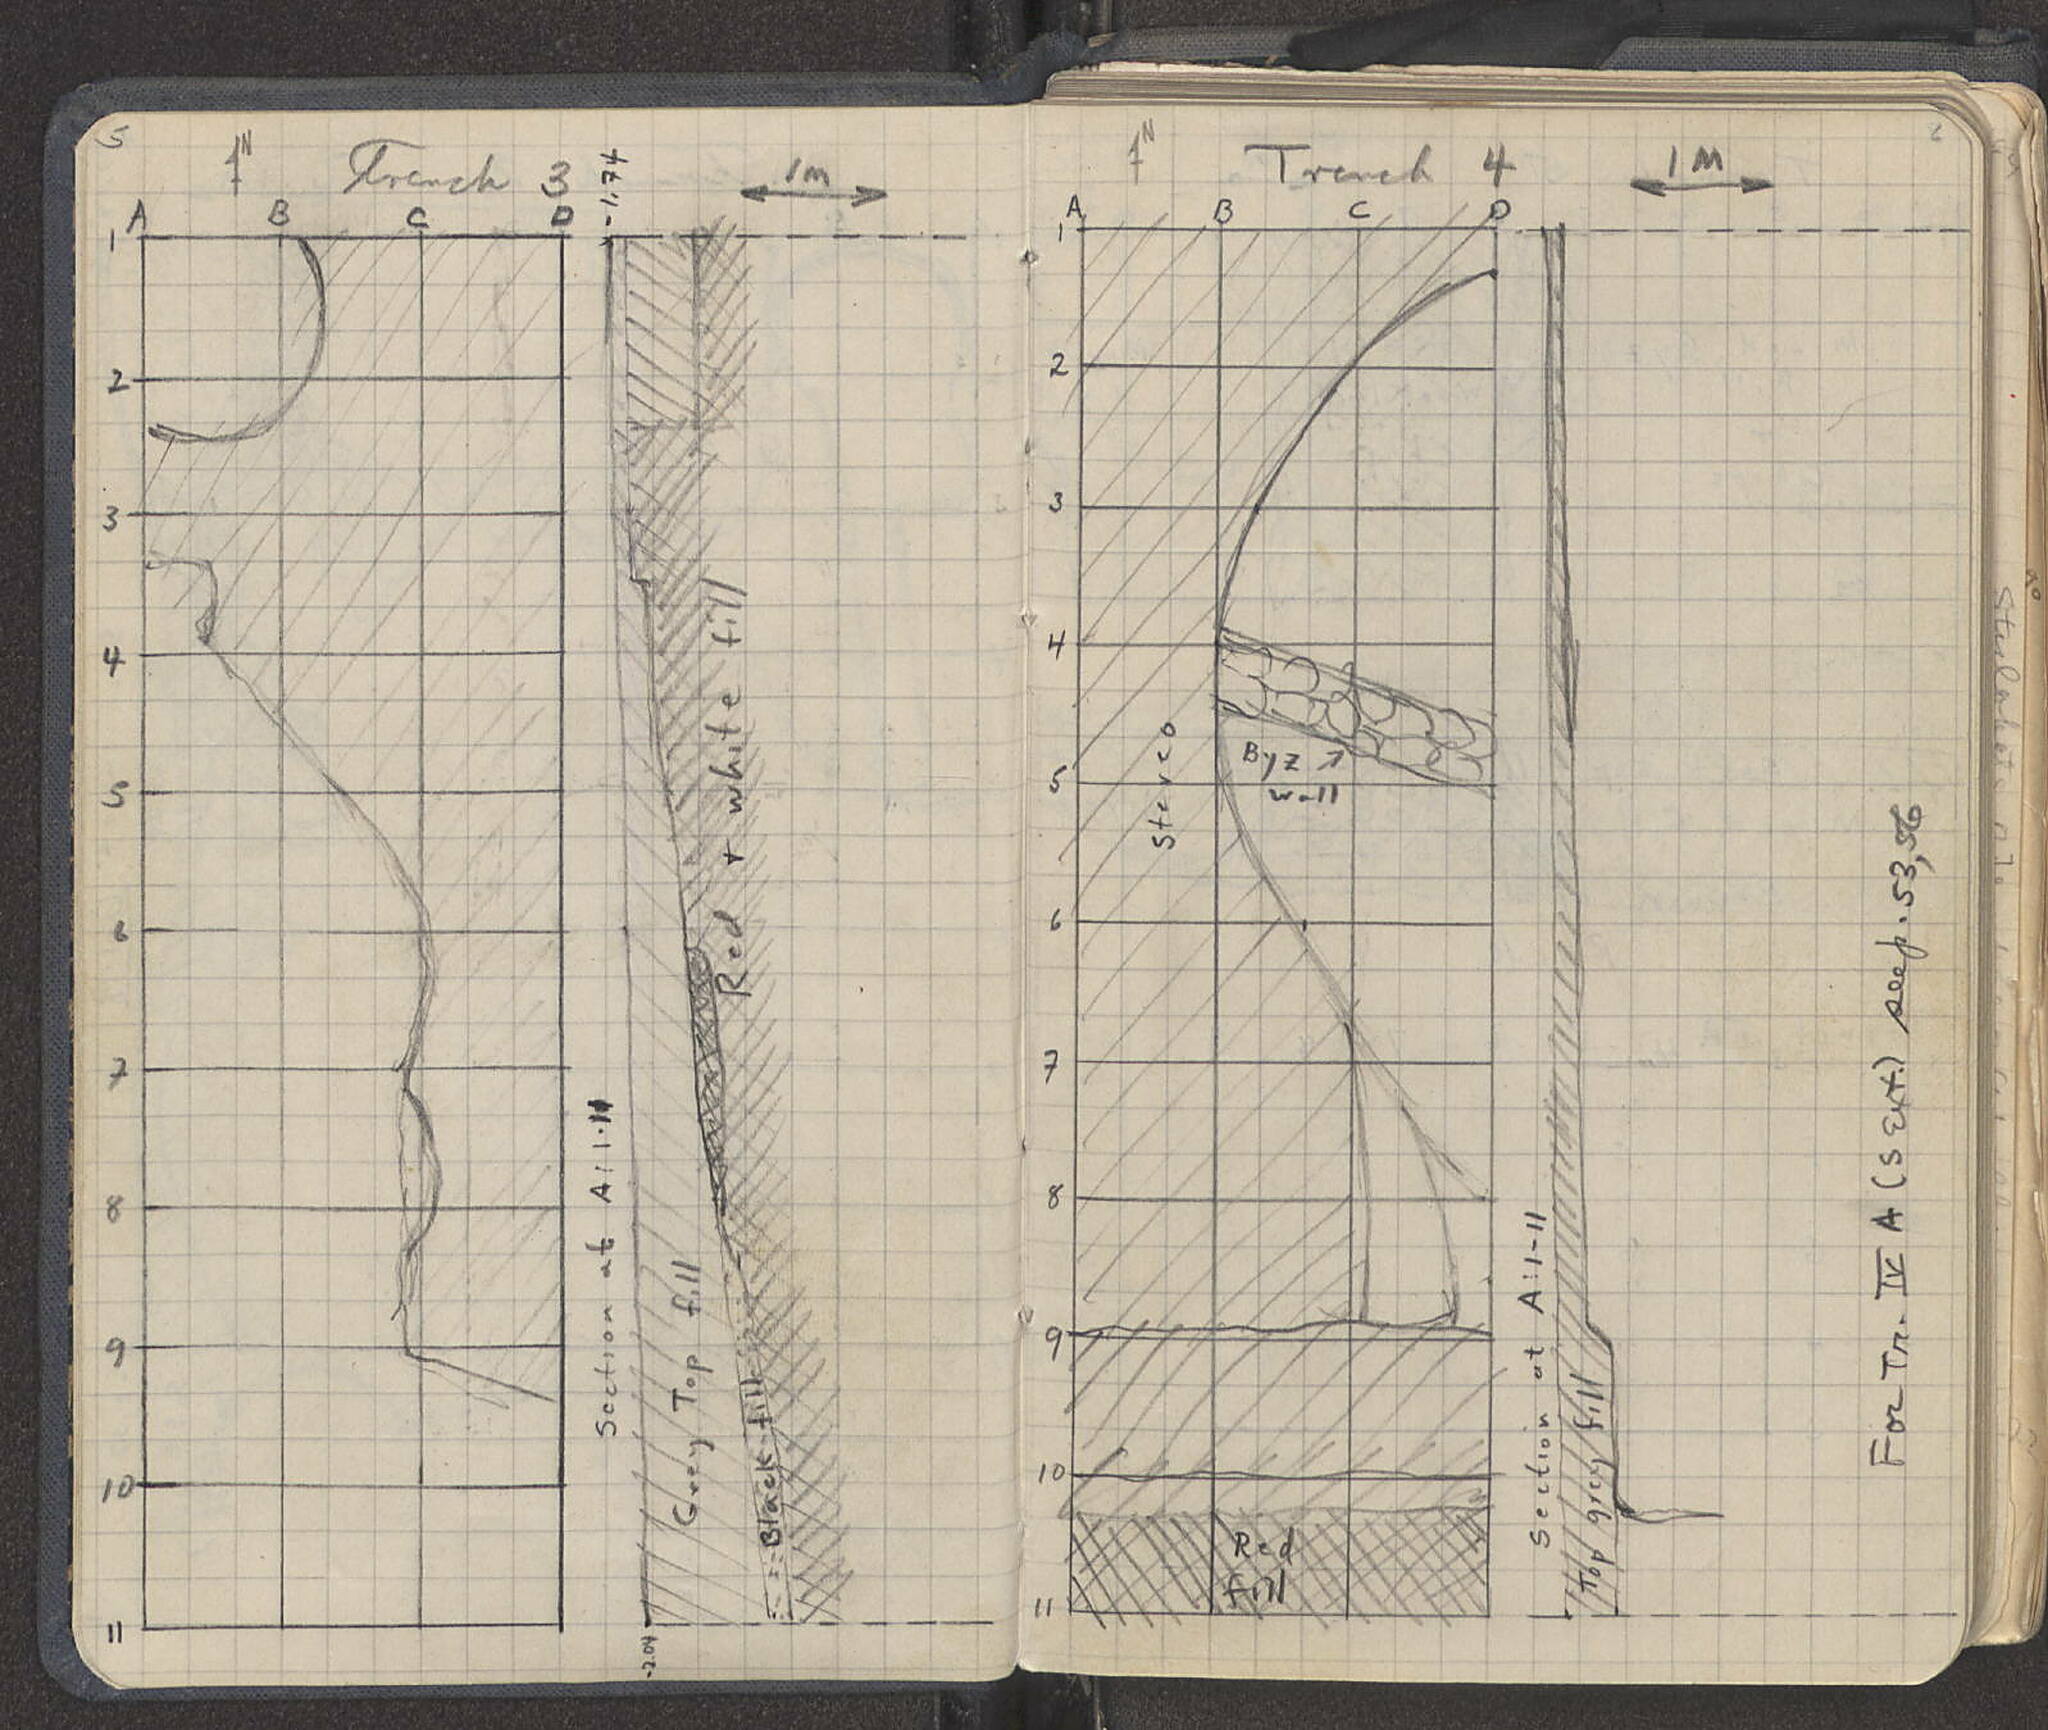 5
N
Trench 3
-1.74
1 m
A B C D
1
2
3
4
5
6
7
8
9
10
11
Section at A:1-11
Grey Top fill
Red + white fill
Black fill
-2.04
N
Trench 4
1 M
A B C D
1
2
3
4
5
6
7
8
9
10
11
stereo
Byz
wall
Red
fill
Section at A:1-11
Top grey fill
For Tr. IV A (S Ext.) see p. 53, 56